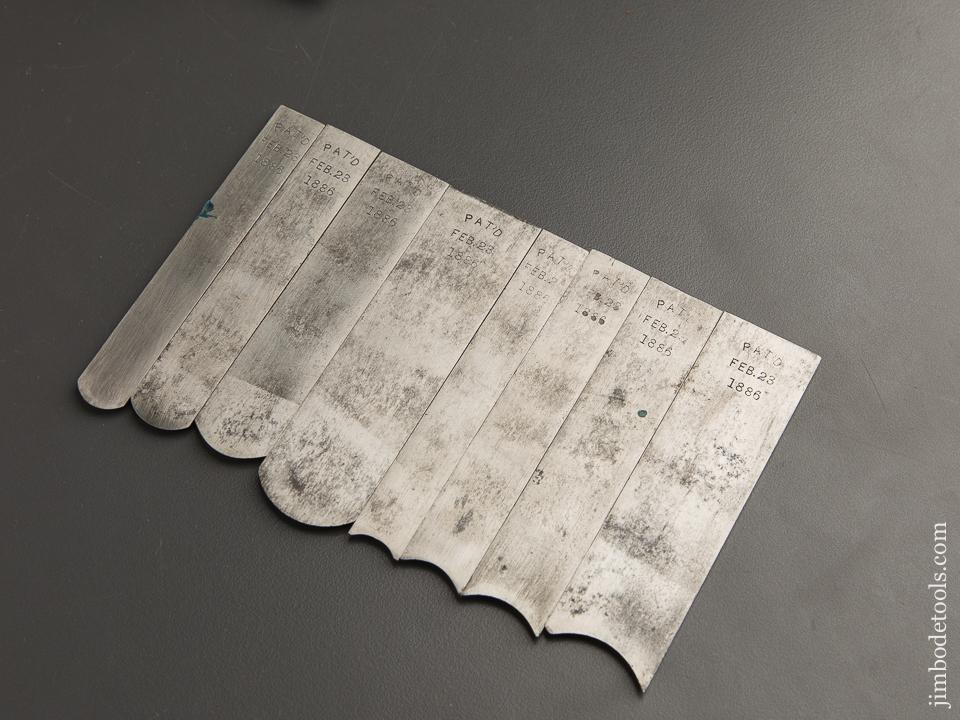 PAT'D
FEB.23
1886
PAT'D
FEB.23
1886
PAT'D
FEB.23
1886
PAT'D
FEB.23
1886
PAT'D
FEB.2
1886
PAT'D
B.23
1886
PAT
FEB.2
1886
PAT'D
FEB.23
1886
jimbodetools.com